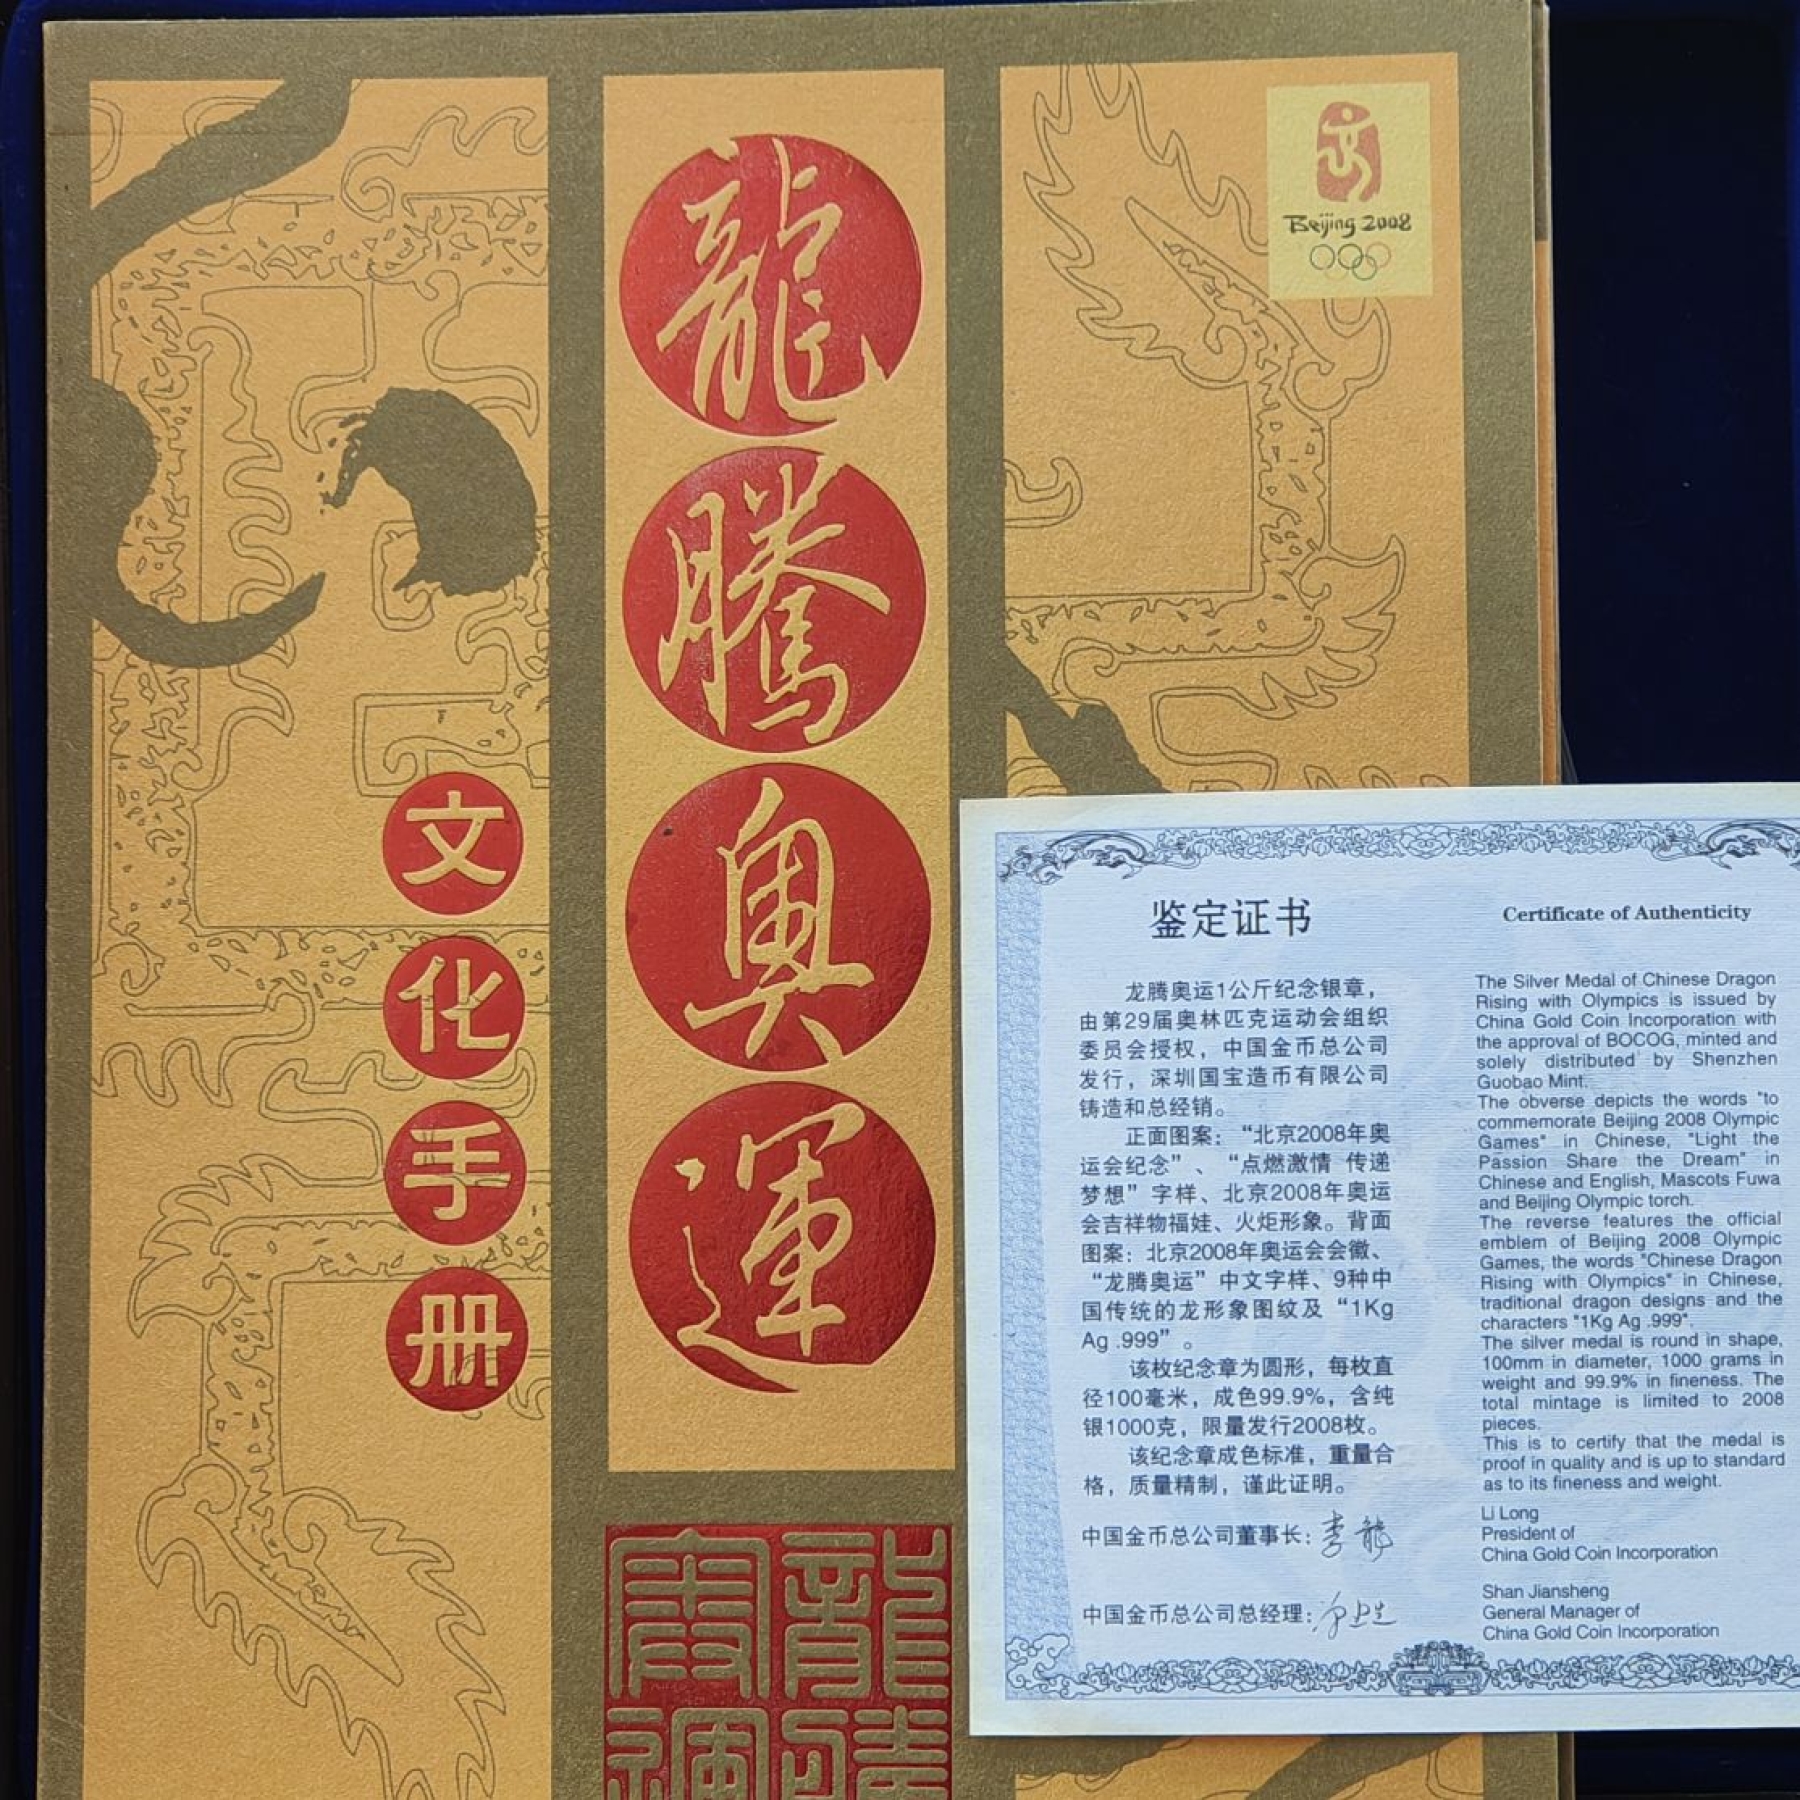 龍
騰
奥
運
文
化
手
册
Beijing 2008
鉴定证书
龙腾奥运1公斤纪念银章，
由第29届奥林匹克运动会组织
委员会授权，中国金币总公司
发行，深圳国宝造币有限公司
铸造和总经销。
正面图案：“北京2008年奥
运会纪念”、“点燃激情 传递
梦想”字样、北京2008年奥运
会吉祥物福娃、火炬形象。背面
图案：北京2008年奥运会会徽、
“龙腾奥运”中文字样、9种中
国传统的龙形象图纹及“1Kg
Ag .999”。
该枚纪念章为圆形，每枚直
径100毫米，成色99.9%，含纯
银1000克，限量发行2008枚。
该纪念章成色标准，重量合
格，质量精制，谨此证明。
中国金币总公司董事长：李龍
中国金币总公司总经理：
Certificate of Authenticity
The Silver Medal of Chinese Dragon
Rising with Olympics is issued by
China Gold Coin Incorporation with
the approval of BOCOG, minted and
solely distributed by Shenzhen
Guobao Mint.
The obverse depicts the words "to
commemorate Beijing 2008 Olympic
Games" in Chinese, "Light the
Passion Share the Dream" in
Chinese and English, Mascots Fuwa
and Beijing Olympic torch.
The reverse features the official
emblem of Beijing 2008 Olympic
Games, the words "Chinese Dragon
Rising with Olympics" in Chinese,
traditional dragon designs and the
characters "1Kg Ag .999".
The silver medal is round in shape,
100mm in diameter, 1000 grams in
weight and 99.9% in fineness. The
total mintage is limited to 2008
pieces.
This is to certify that the medal is
proof in quality and is up to standard
as to its fineness and weight.
Li Long
President of
China Gold Coin Incorporation
Shan Jiansheng
General Manager of
China Gold Coin Incorporation